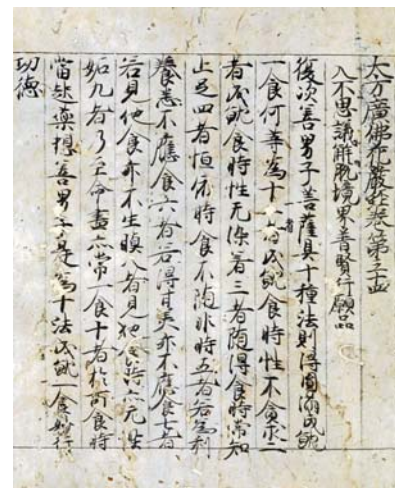 大方廣佛花嚴經卷第四
入不思議解脫境界普賢行願品
復次善男子菩薩具十種法則得圓滿成就
一食何等為十一者成就食時性不貪求二
者成就食時性无染著三者隨得食時常知
止足四者恒依時食不隨非時五者若為利
養悉不應食六者若得甘美亦不應食七者
若見他食亦不生瞋八者見他食得亦无嫉
妬九者乃至命盡亦常一食十者於可食時
當起藥想善男子是為十法成就一食妙行
功德